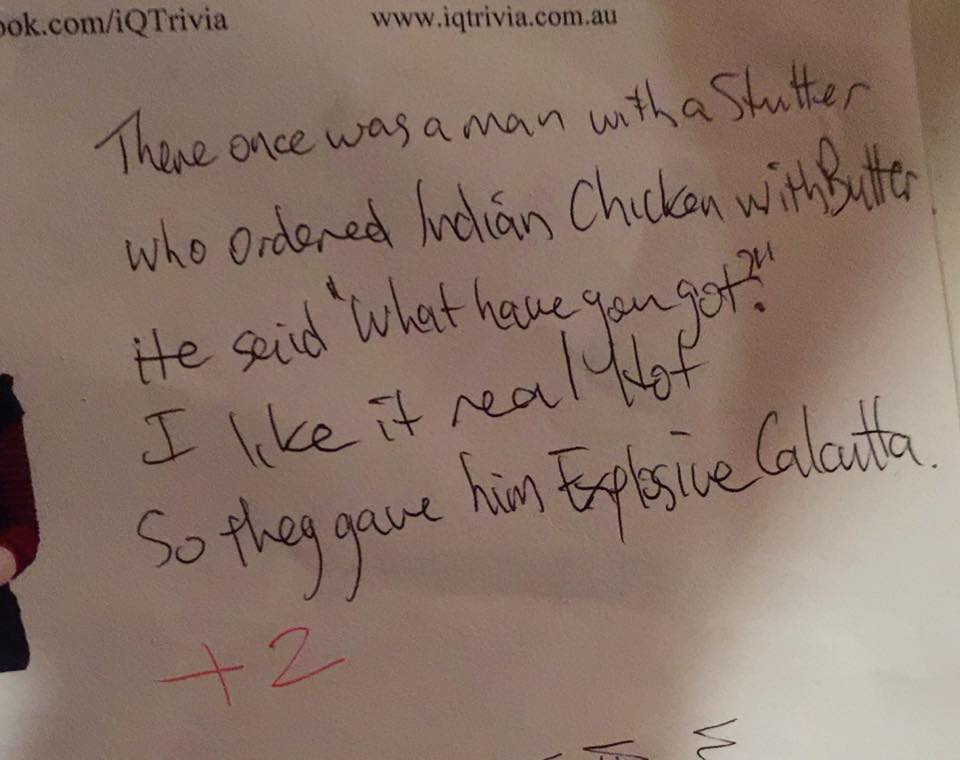 ook.com/iQTrivia www.iqtrivia.com.au
There once was a man with a Stutter
who ordered Indian Chicken with Butter.
He said "What have you got?"
I like it really Hot
So they gave him Explosive Calcutta.
+2